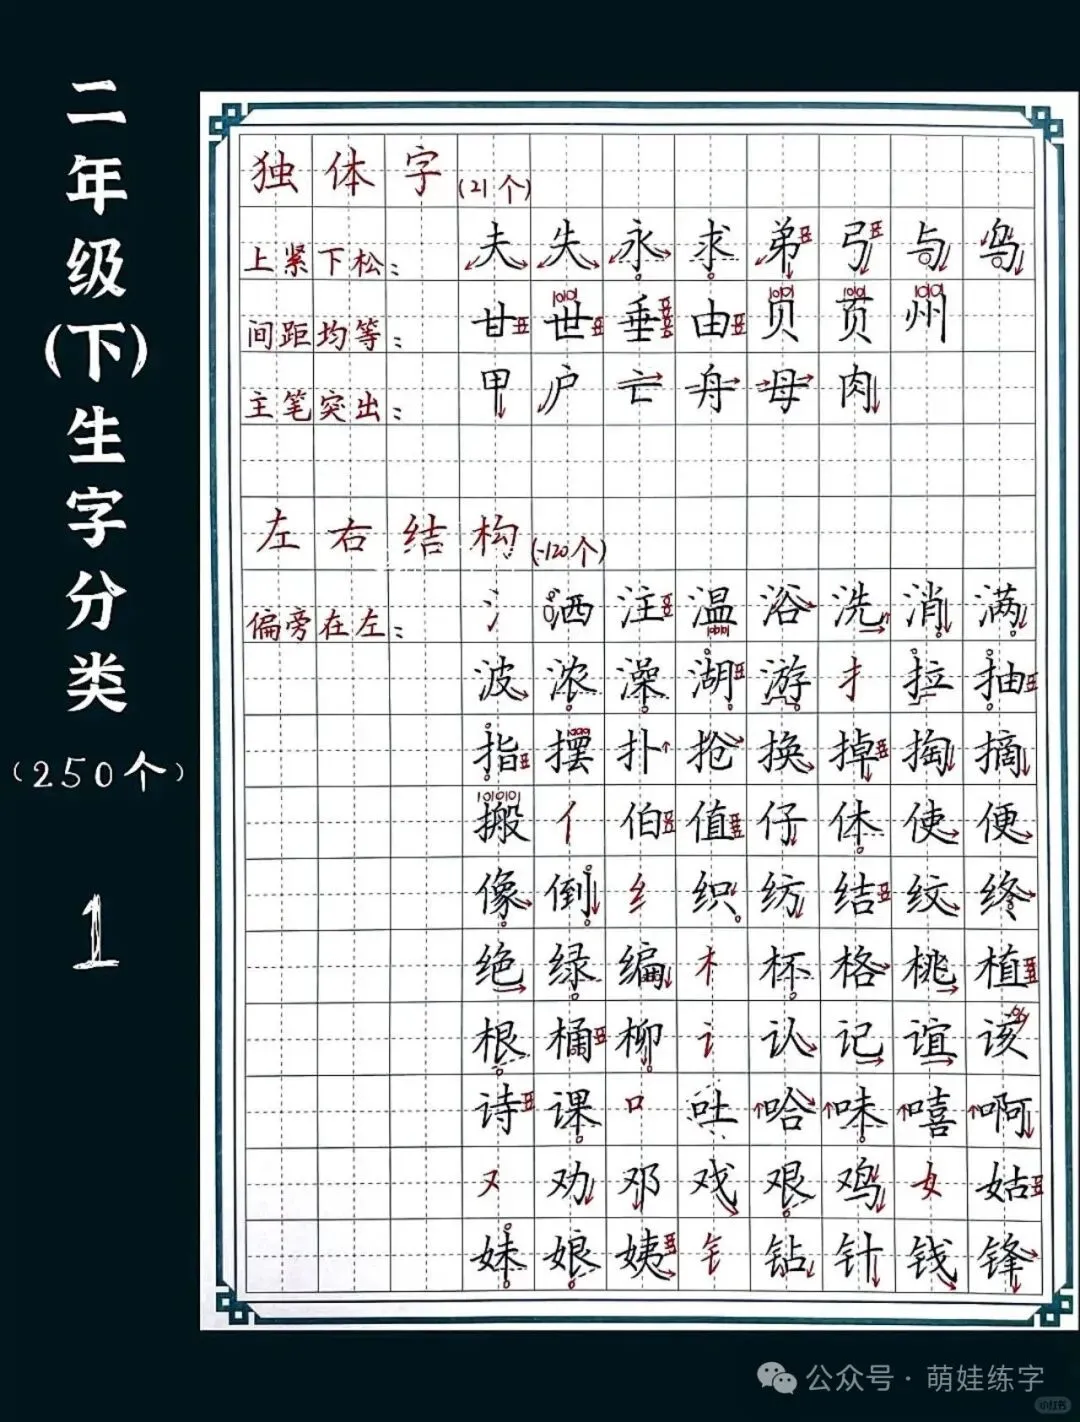 二年级(下)生字分类
(250个)
1
独体字(21个)
上紧下松: 夫失永求弟弓与鸟
间距均等: 甘世垂由贝页州
主笔突出: 甲户亡舟母肉
左右结构(-120个)
偏旁在左: 氵洒注温浴洗消满
波浓澡湖游扌拉抽
指摆扑抢换掉掏摘
搬亻伯值仔体使便
像倒纟织纺结绞终
绝绿编木杯格桃植
根桶柳讠认记谊该
诗课口吐哈味嘻啊
又劝邓戏艰鸡女姑
妹娘姨钅钻针钱锋
公众号·萌娃练字
小红书